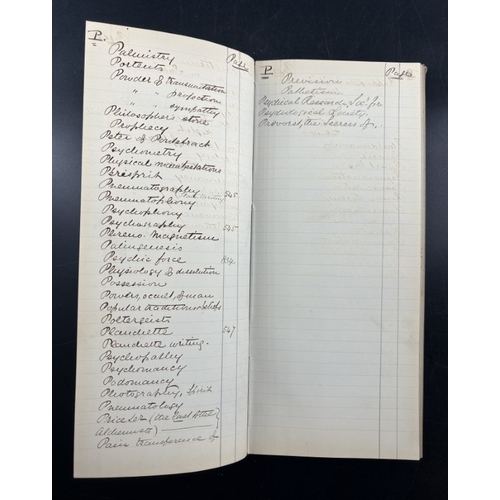 P. Page
Palmistry
Portents
Powder of transmutation
" " projection
" " sympathy
Philosopher's stone
Prophecy
Peter of
Psychometry
Physical manifestations
Périsprit
Pneumatography 545
Pneumatophony
Psychophony
Psychography 545
Phreno-Magnetism
Palingenesis
Psychic force
Physiology & dissolution
Possession
Powers, occult, of man
Popular traditions
Poltergeists
Planchette 547
Planchette writing.
Psychopathy
Psychomancy
Podomancy
Photography, Spirit
Pneumatology
Price Dr (the Last of the
alchemists)
Pain transference of
P Page
Prevision
Pathetism
Psychical Research, Soc. for
Psychological Society,
Prevorst, the Seeress of,